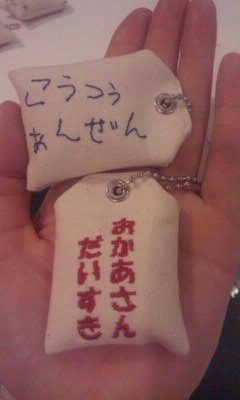 こうつう
あんぜん
おかあさん
だいすき